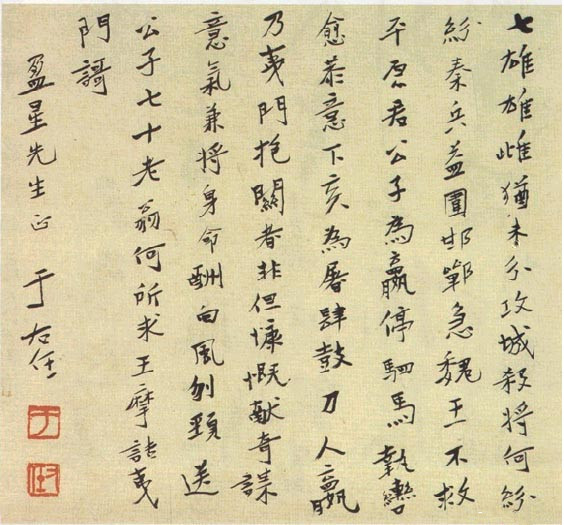 七雄雄雌猶未分攻城殺將何紛
紛秦兵益圍邯鄲急魏王不救
平原君公子為嬴停駟馬執轡
愈恭意下亥為屠肆鼓刀人嬴
乃夷門抱關者非但慷慨獻奇謀
意氣兼將身命酬向風刎頸送
公子七十老翁何所求王摩詰夷
門謌
盈星先生正 于右任
于